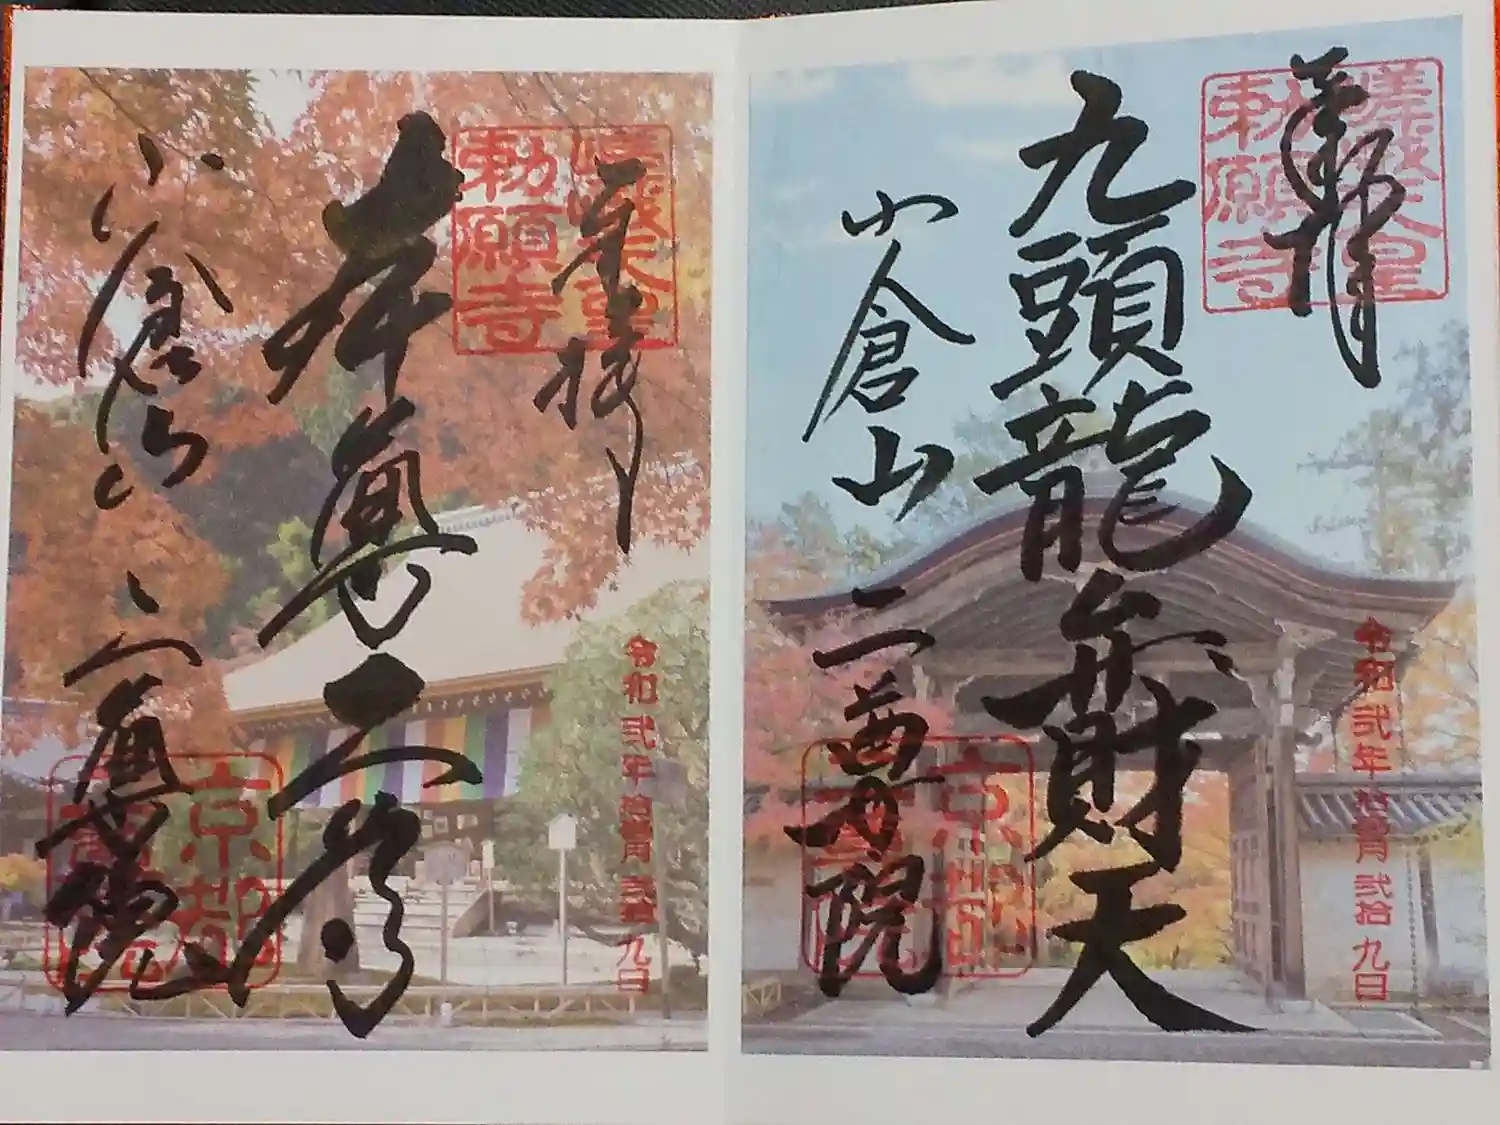 奉拝
嵯峨天皇
勅願寺
九頭龍弁財天
小倉山
二尊院
京都
二尊院
令和弐年拾壱月弐拾九日
奉拝
嵯峨天皇
勅願寺
本尊二尊
小倉山
二尊院
京都
二尊院
令和弐年拾壱月弐拾九日